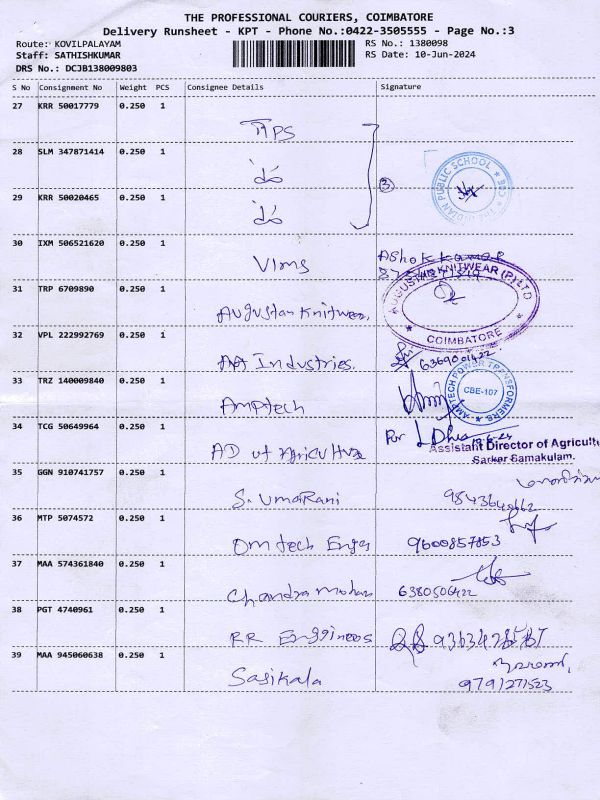 THE PROFESSIONAL COURIERS, COIMBATORE
Delivery Runsheet - KPT - Phone No.:0422-3505555 - Page No.:3
Route: KOVILPALAYAM RS No.: 1380098
Staff: SATHISHKUMAR RS Date: 10-Jun-2024
DRS No.: DCJB138009803
S No Consignment No Weight PCS Consignee Details Signature
27 KRR 50017779 0.250 1
TIPS
28 SLM 347871414 0.250 1
do
3
29 KRR 50020465 0.250 1
do
PUBLIC SCHOOL
30 IXM 506521620 0.250 1
Vims Ashok kumar
31 TRP 6709890 0.250 1
Augustan Knitwear
AUGUSTAN KNITWEAR (P) LTD
COIMBATORE
32 VPL 222992769 0.250 1
AA Industries. 6369001422
33 TRZ 140009840 0.250 1
Amptech
AMPTECH POWER TRANSFORMERS
CBE-107
34 TCG 50649964 0.250 1
AD of Agriculture For
Assistant Director of Agricultu
Sarkar Samakulam.
35 GGN 910741757 0.250 1
S. UmaRani
36 MTP 5074572 0.250 1
Omtech Engg 9600857853
37 MAA 574361840 0.250 1
Chandra mohan 6380506422
38 PGT 4740961 0.250 1
RR Enggineers
39 MAA 945060638 0.250 1
Sasikala 9791271523